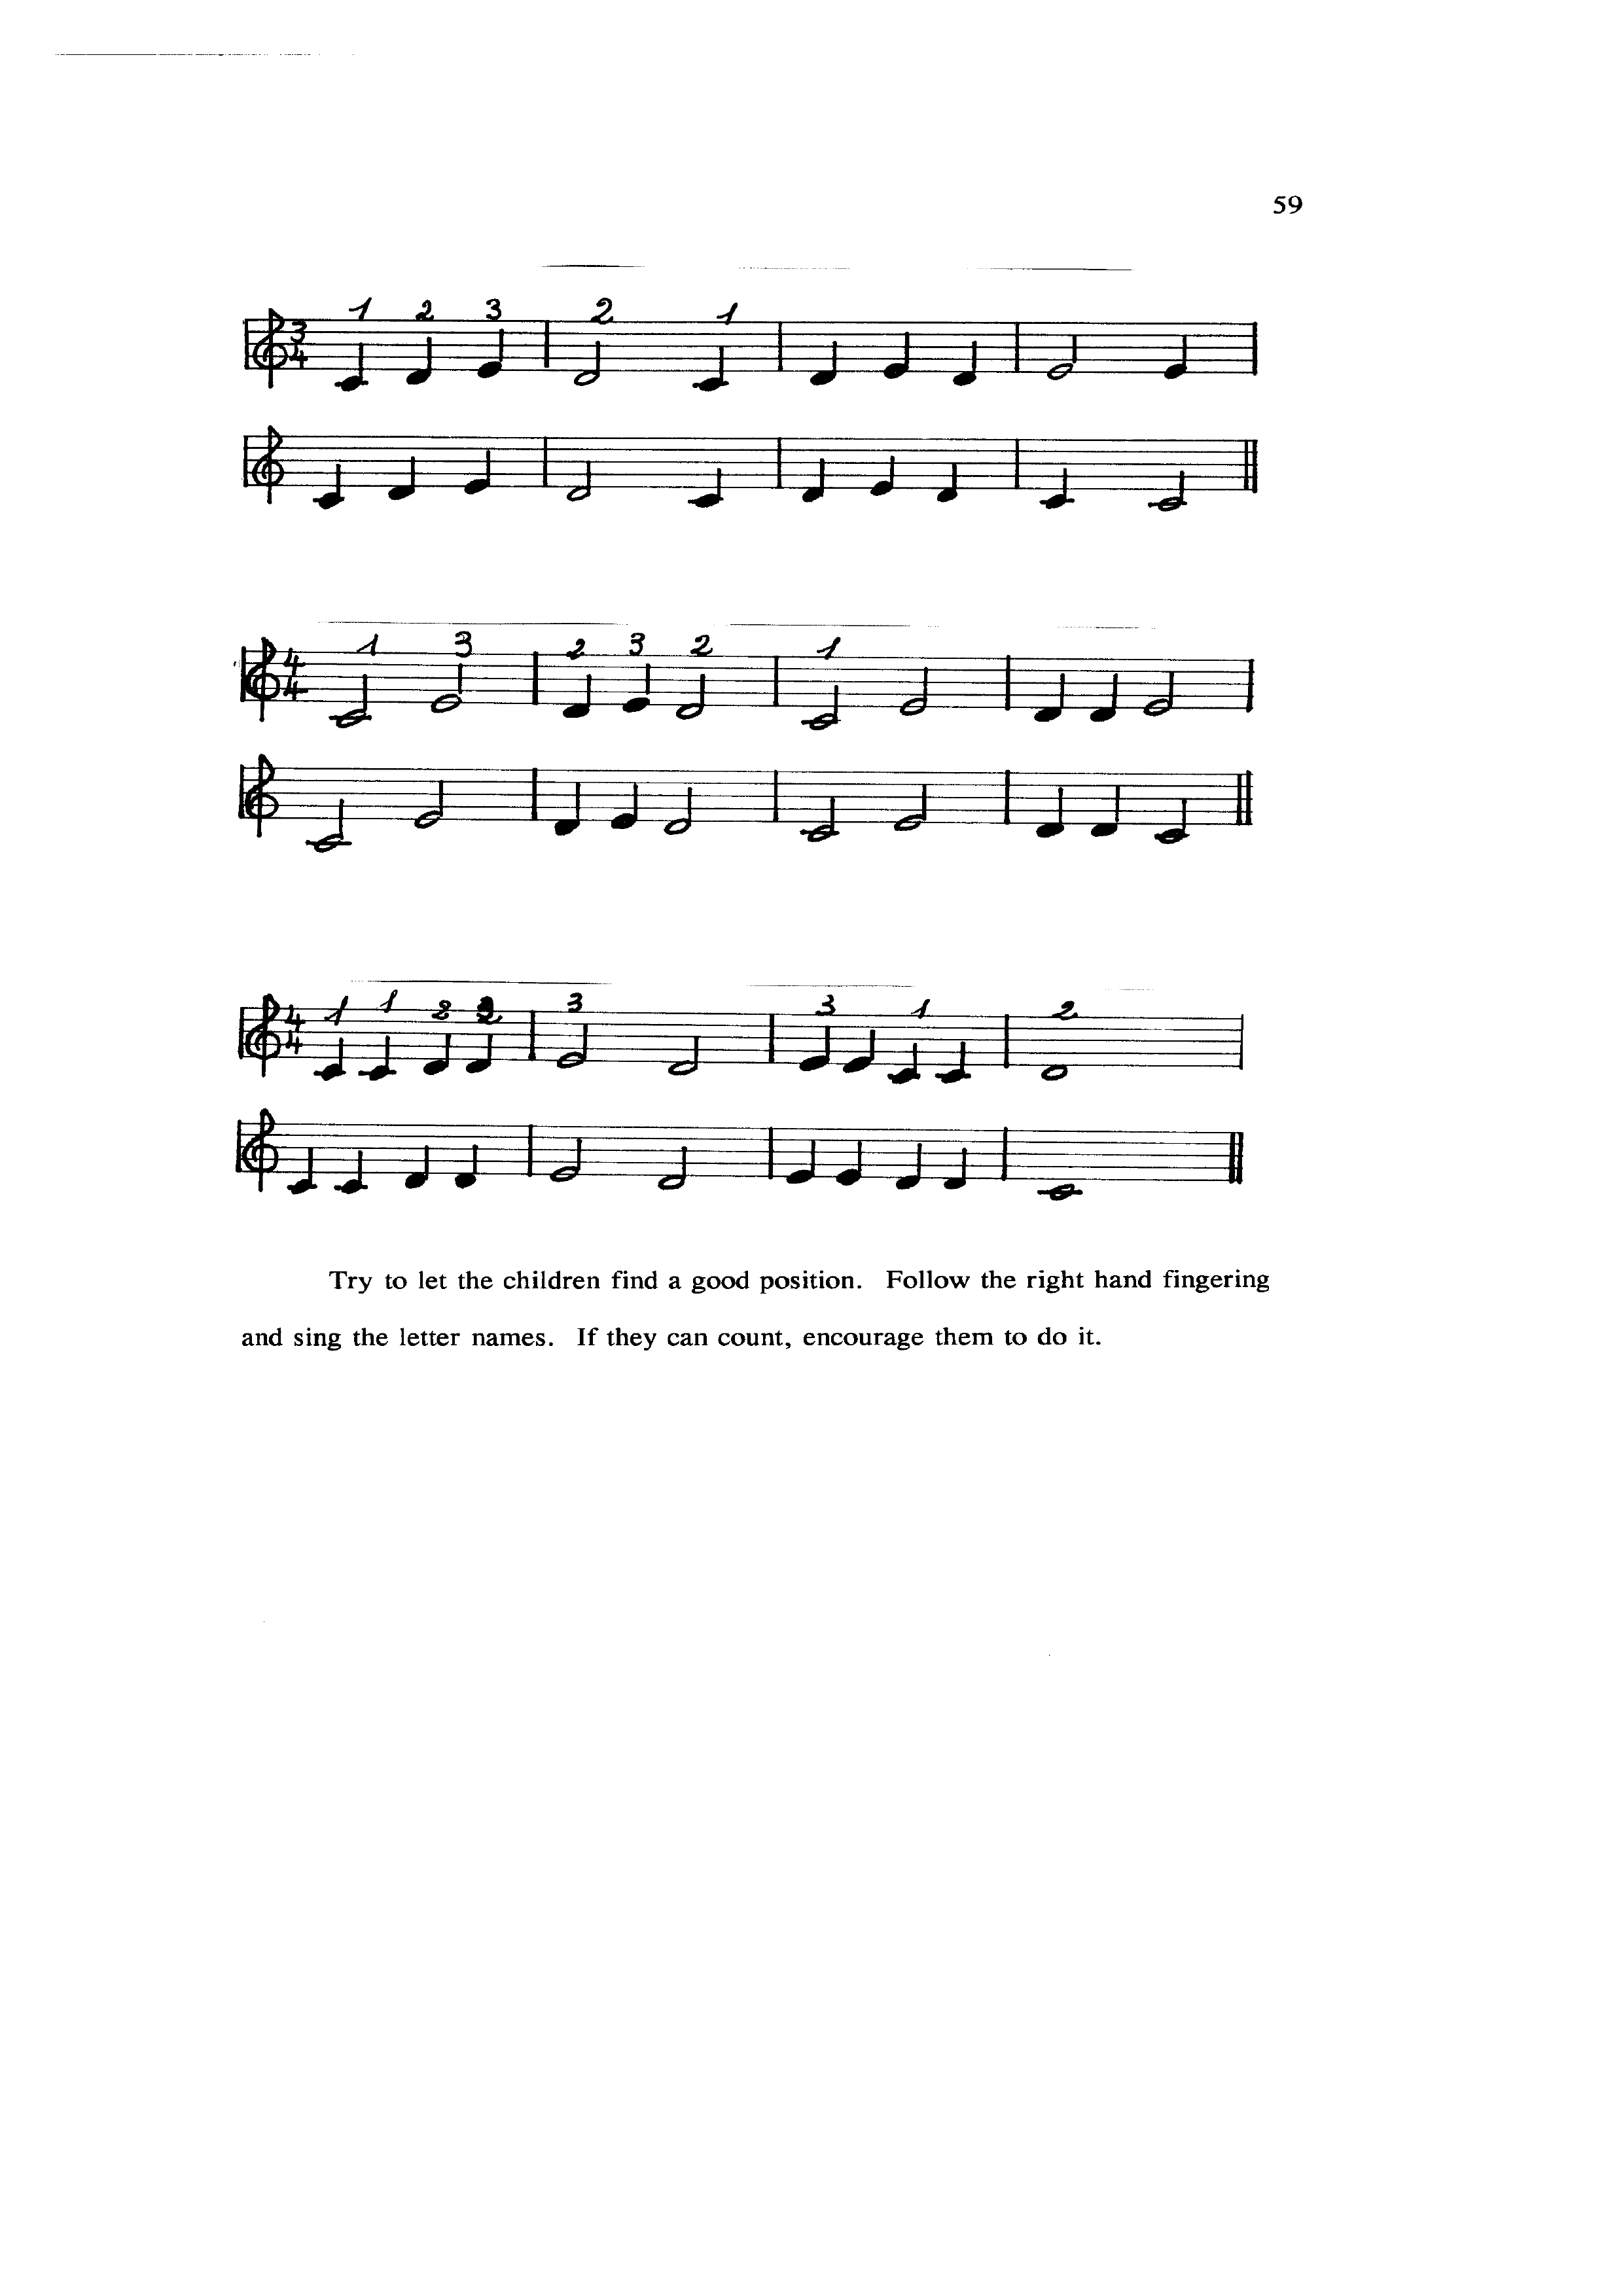 59
1 2 3 2 1
3
4
1 3 2 3 2 1
4
4
1 1 2 3 3 1 2
4
4
Try to let the children find a good position. Follow the right hand fingering
and sing the letter names. If they can count, encourage them to do it.